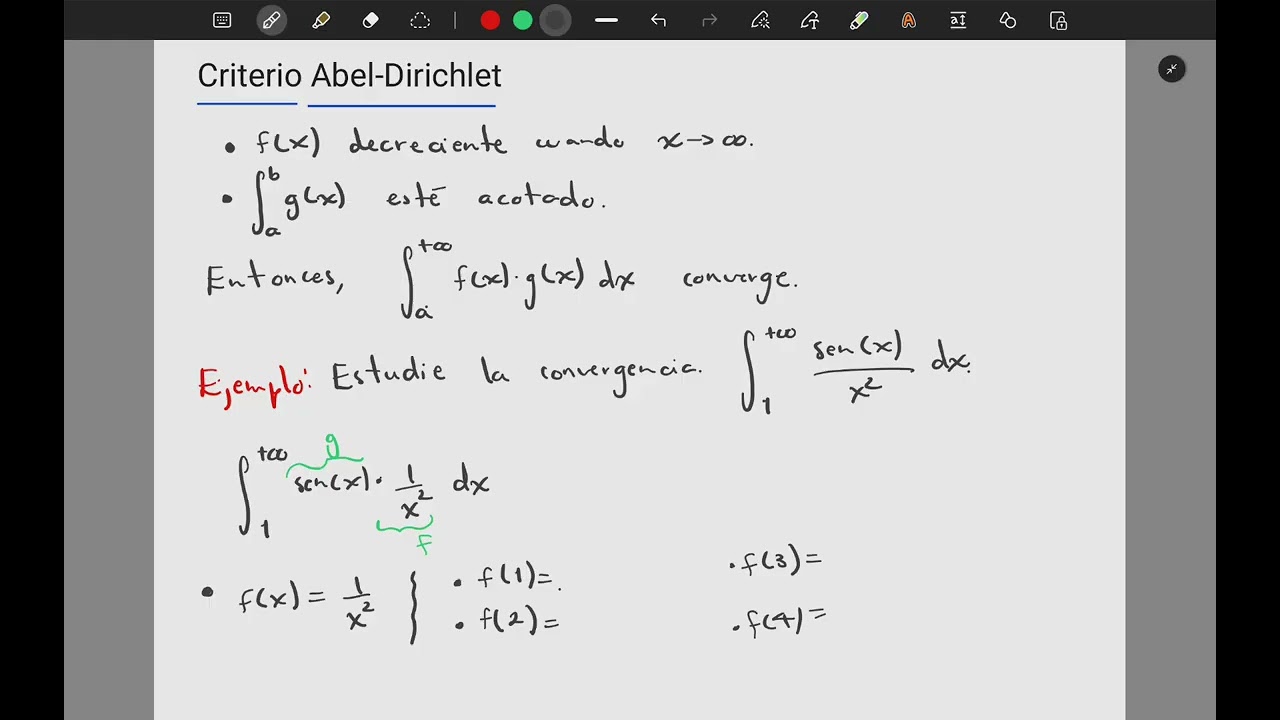 Criterio Abel-Dirichlet
• f(x) decreciente cuando x→∞.
• ∫_a^b g(x) esté acotado.
Entonces, ∫_a^{+∞} f(x)·g(x) dx converge.
Ejemplo: Estudie la convergencia. ∫_1^{+∞} sen(x)/x² dx.
g
∫_1^{+∞} sen(x) · 1/x² dx
f
• f(x) = 1/x² • f(1)=. • f(3)=
• f(2)= • f(4)=